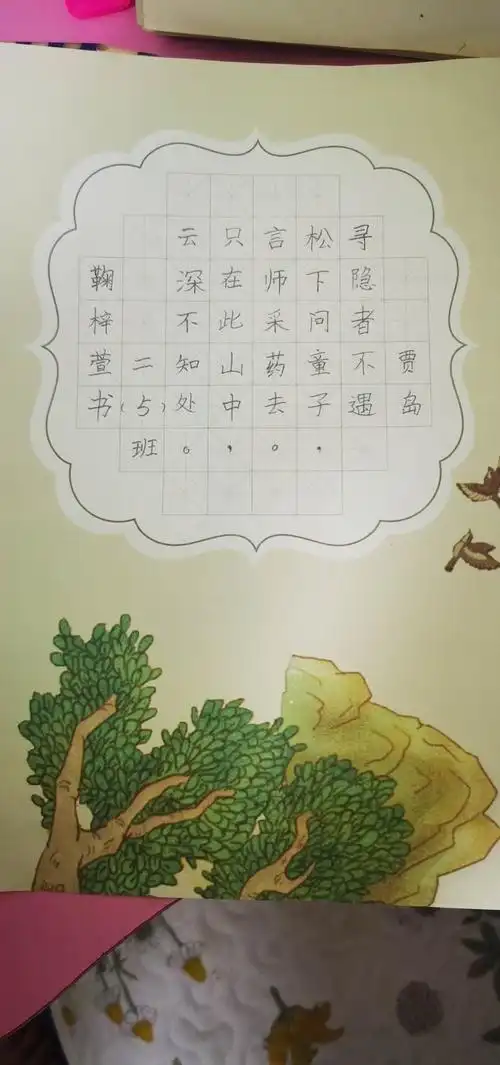 寻隐者不遇
贾岛
松下问童子，
言师采药去。
只在此山中，
云深不知处。
二（5）班
鞠梓萱书